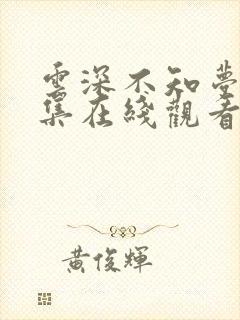 雲深不知夢
集在綫觀看
黃俊輝